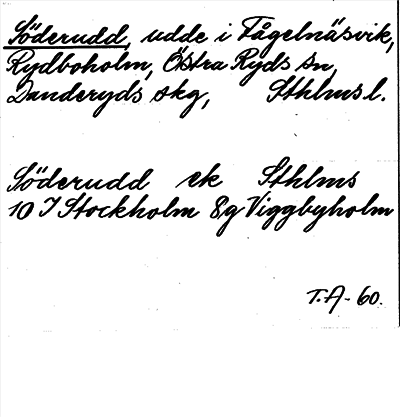 Söderudd, udde i Fågelnäsvik,
Rydboholm, Östra Ryds sn,
Danderyds skg, Sthlms l.
Söderudd ek Sthlms
10 I Stockholm 8g Viggbyholm
T.A-60.